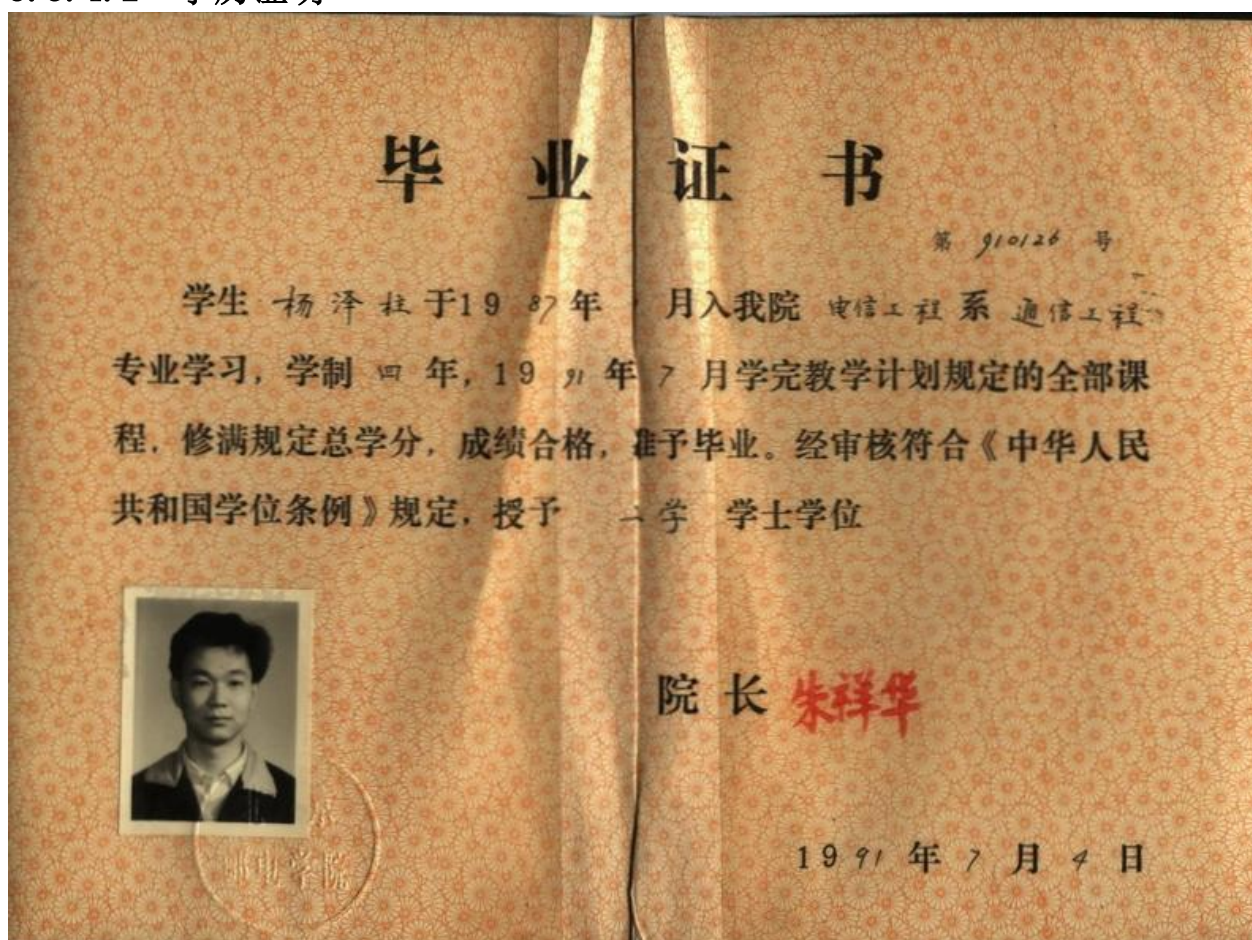 毕业证书
第 910126 号
学生 杨泽柱 于1987年 月入我院 电信工程 系 通信工程
专业学习，学制 四 年，1991年 7 月学完教学计划规定的全部课
程，修满规定总学分，成绩合格，准予毕业。经审核符合《中华人民
共和国学位条例》规定，授予 工学 学士学位
院长 朱祥华
邮电学院
1991年7月4日